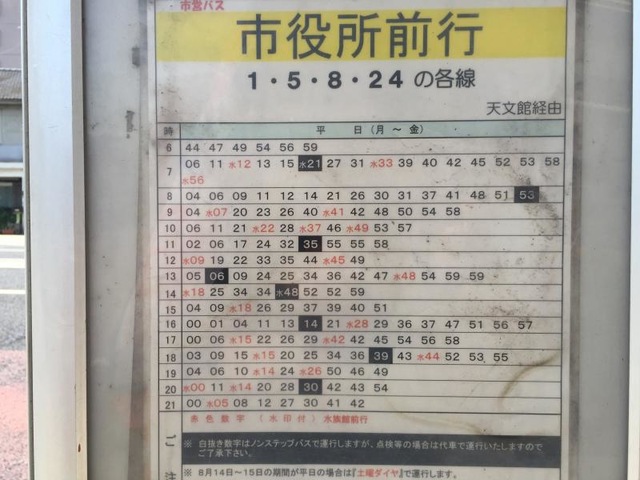 市営バス
市役所前行
1・5・8・24 の各線
天文館経由
時 平 日(月 ～ 金)
6 44 47 49 54 56 59
7 06 11 水12 13 15 水21 27 31 水33 39 40 42 45 52 53 58
水56
8 04 06 09 11 12 14 21 26 30 31 37 41 48 51 53
9 04 水07 20 23 26 40 水41 42 48 50 54 58
10 06 11 21 水22 28 水37 46 水49 53 57
11 02 06 17 24 32 35 55 55 58
12 水09 19 22 33 35 44 水45 49
13 05 06 09 24 25 34 36 42 47 水48 54 59 59
14 水18 25 34 34 水48 52 52 59
15 04 09 水18 26 29 37 39 40 51
16 00 01 04 11 13 14 21 水28 29 36 47 51 56 57
17 00 06 水15 22 26 29 水42 45 54 56 58
18 03 09 15 水15 20 25 34 36 39 43 水44 52 53 55
19 04 06 10 水14 24 水26 50 46 49
20 水00 11 水14 20 28 30 42 43 54
21 00 水05 08 12 27 30 41 42
赤色数字 (水印付) 水族館前行
ご注
※ 白抜き数字はノンステップバスで運行しますが、点検等の場合は代車で運行いたしますので
ご了承下さい。
※ 8月14日～15日の期間が平日の場合は『土曜ダイヤ』で運行します。